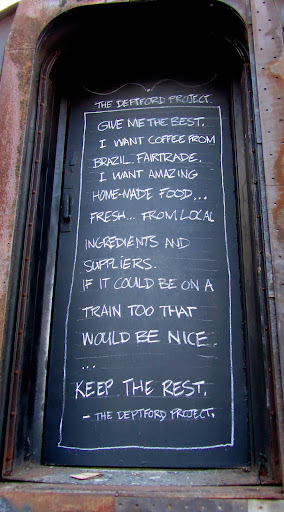 THE DEPTFORD PROJECT.
GIVE ME THE BEST.
I WANT COFFEE FROM
BRAZIL. FAIRTRADE.
I WANT AMAZING
HOME-MADE FOOD...
FRESH... FROM LOCAL
INGREDIENTS AND
SUPPLIERS.
IF IT COULD BE ON A
TRAIN TOO THAT
WOULD BE NICE.
...
KEEP THE REST.
- THE DEPTFORD PROJECT.